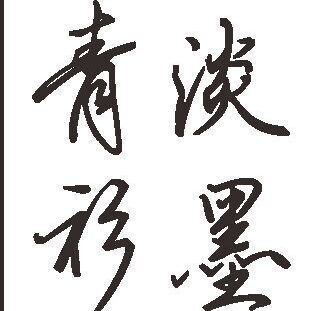 淡墨
青衫